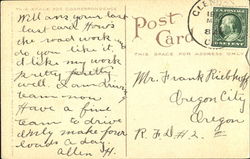 THIS SPACE FOR CORRESPONDENCE
Post Card
THIS SPACE FOR ADDRESS ONLY
Will ans your last
card. How's
the road work
do you like it.
I like my work
pretty
well. I am
team now
Have a fine
team to drive
Only make four
loads a day.
Allen H.
Mr. Frank
Oregon City
Oregon
R F D # 2